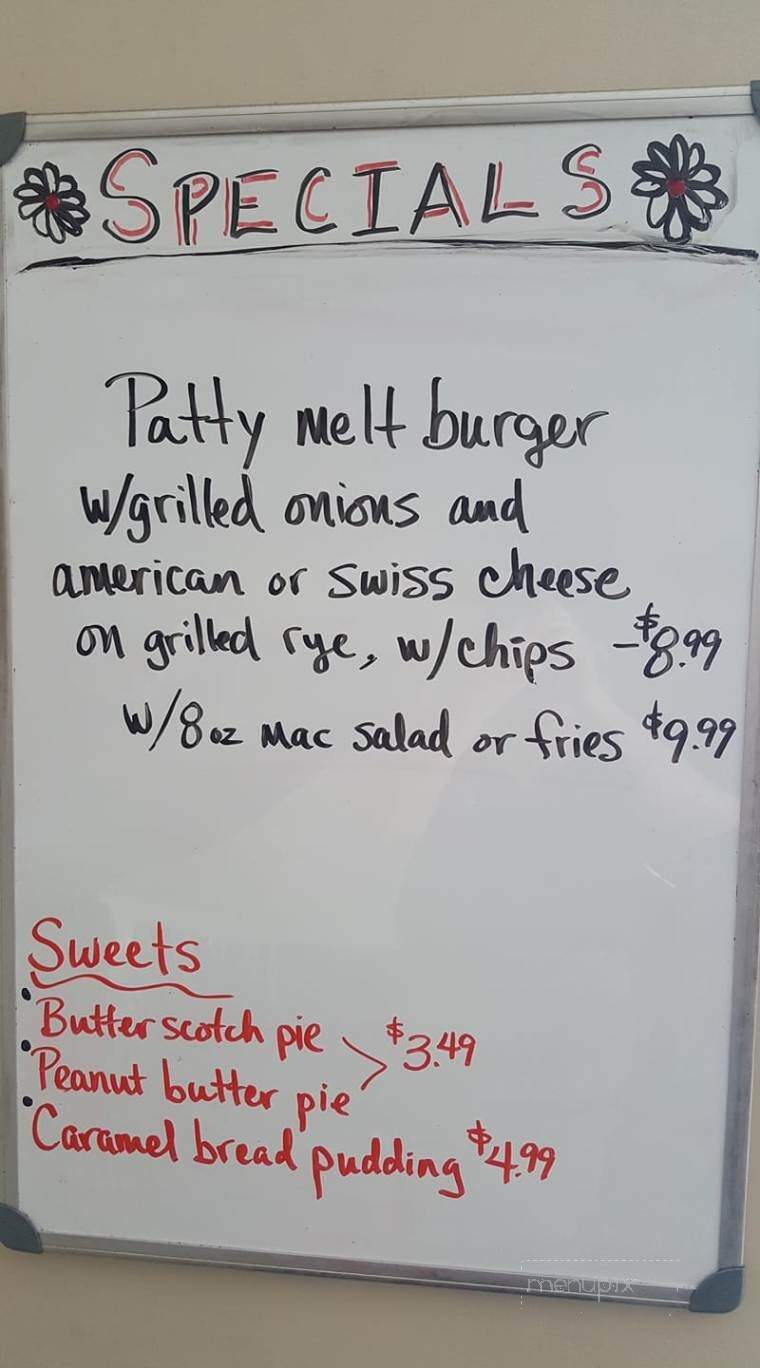 SPECIALS
Patty melt burger
w/grilled onions and
american or swiss cheese
on grilled rye, w/chips -$8.99
w/8oz Mac salad or fries $9.99
Sweets
• Butterscotch pie
$3.49
• Peanut butter pie
• Caramel bread pudding $4.99
menupix